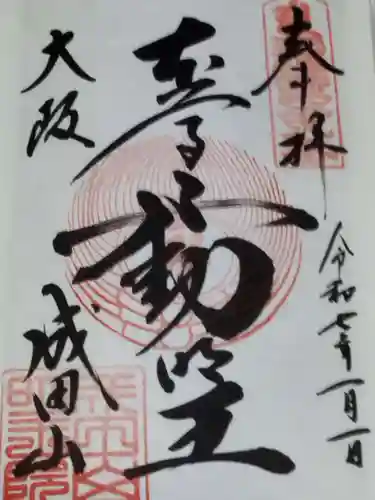 奉拝
令和七年一月一日
不動明王
大阪
成田山